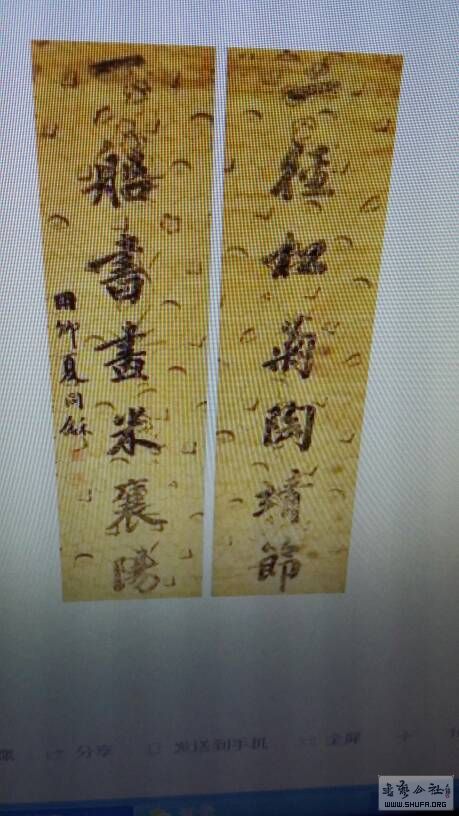 三徑松菊陶靖節
一船書畫米襄陽
用卿夏同龢
分享 发送到手机 全屏
書藝公社
WWW.SHUFA.ORG